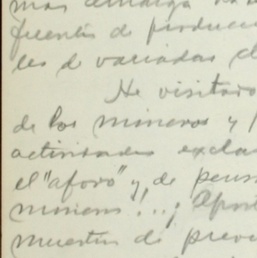 mas amarga
fuentes de producci
les de variadas cl
He visitado
de los mineros y
actividades excla
el "aforo" y, de
mineros!...¡
muestras de previ